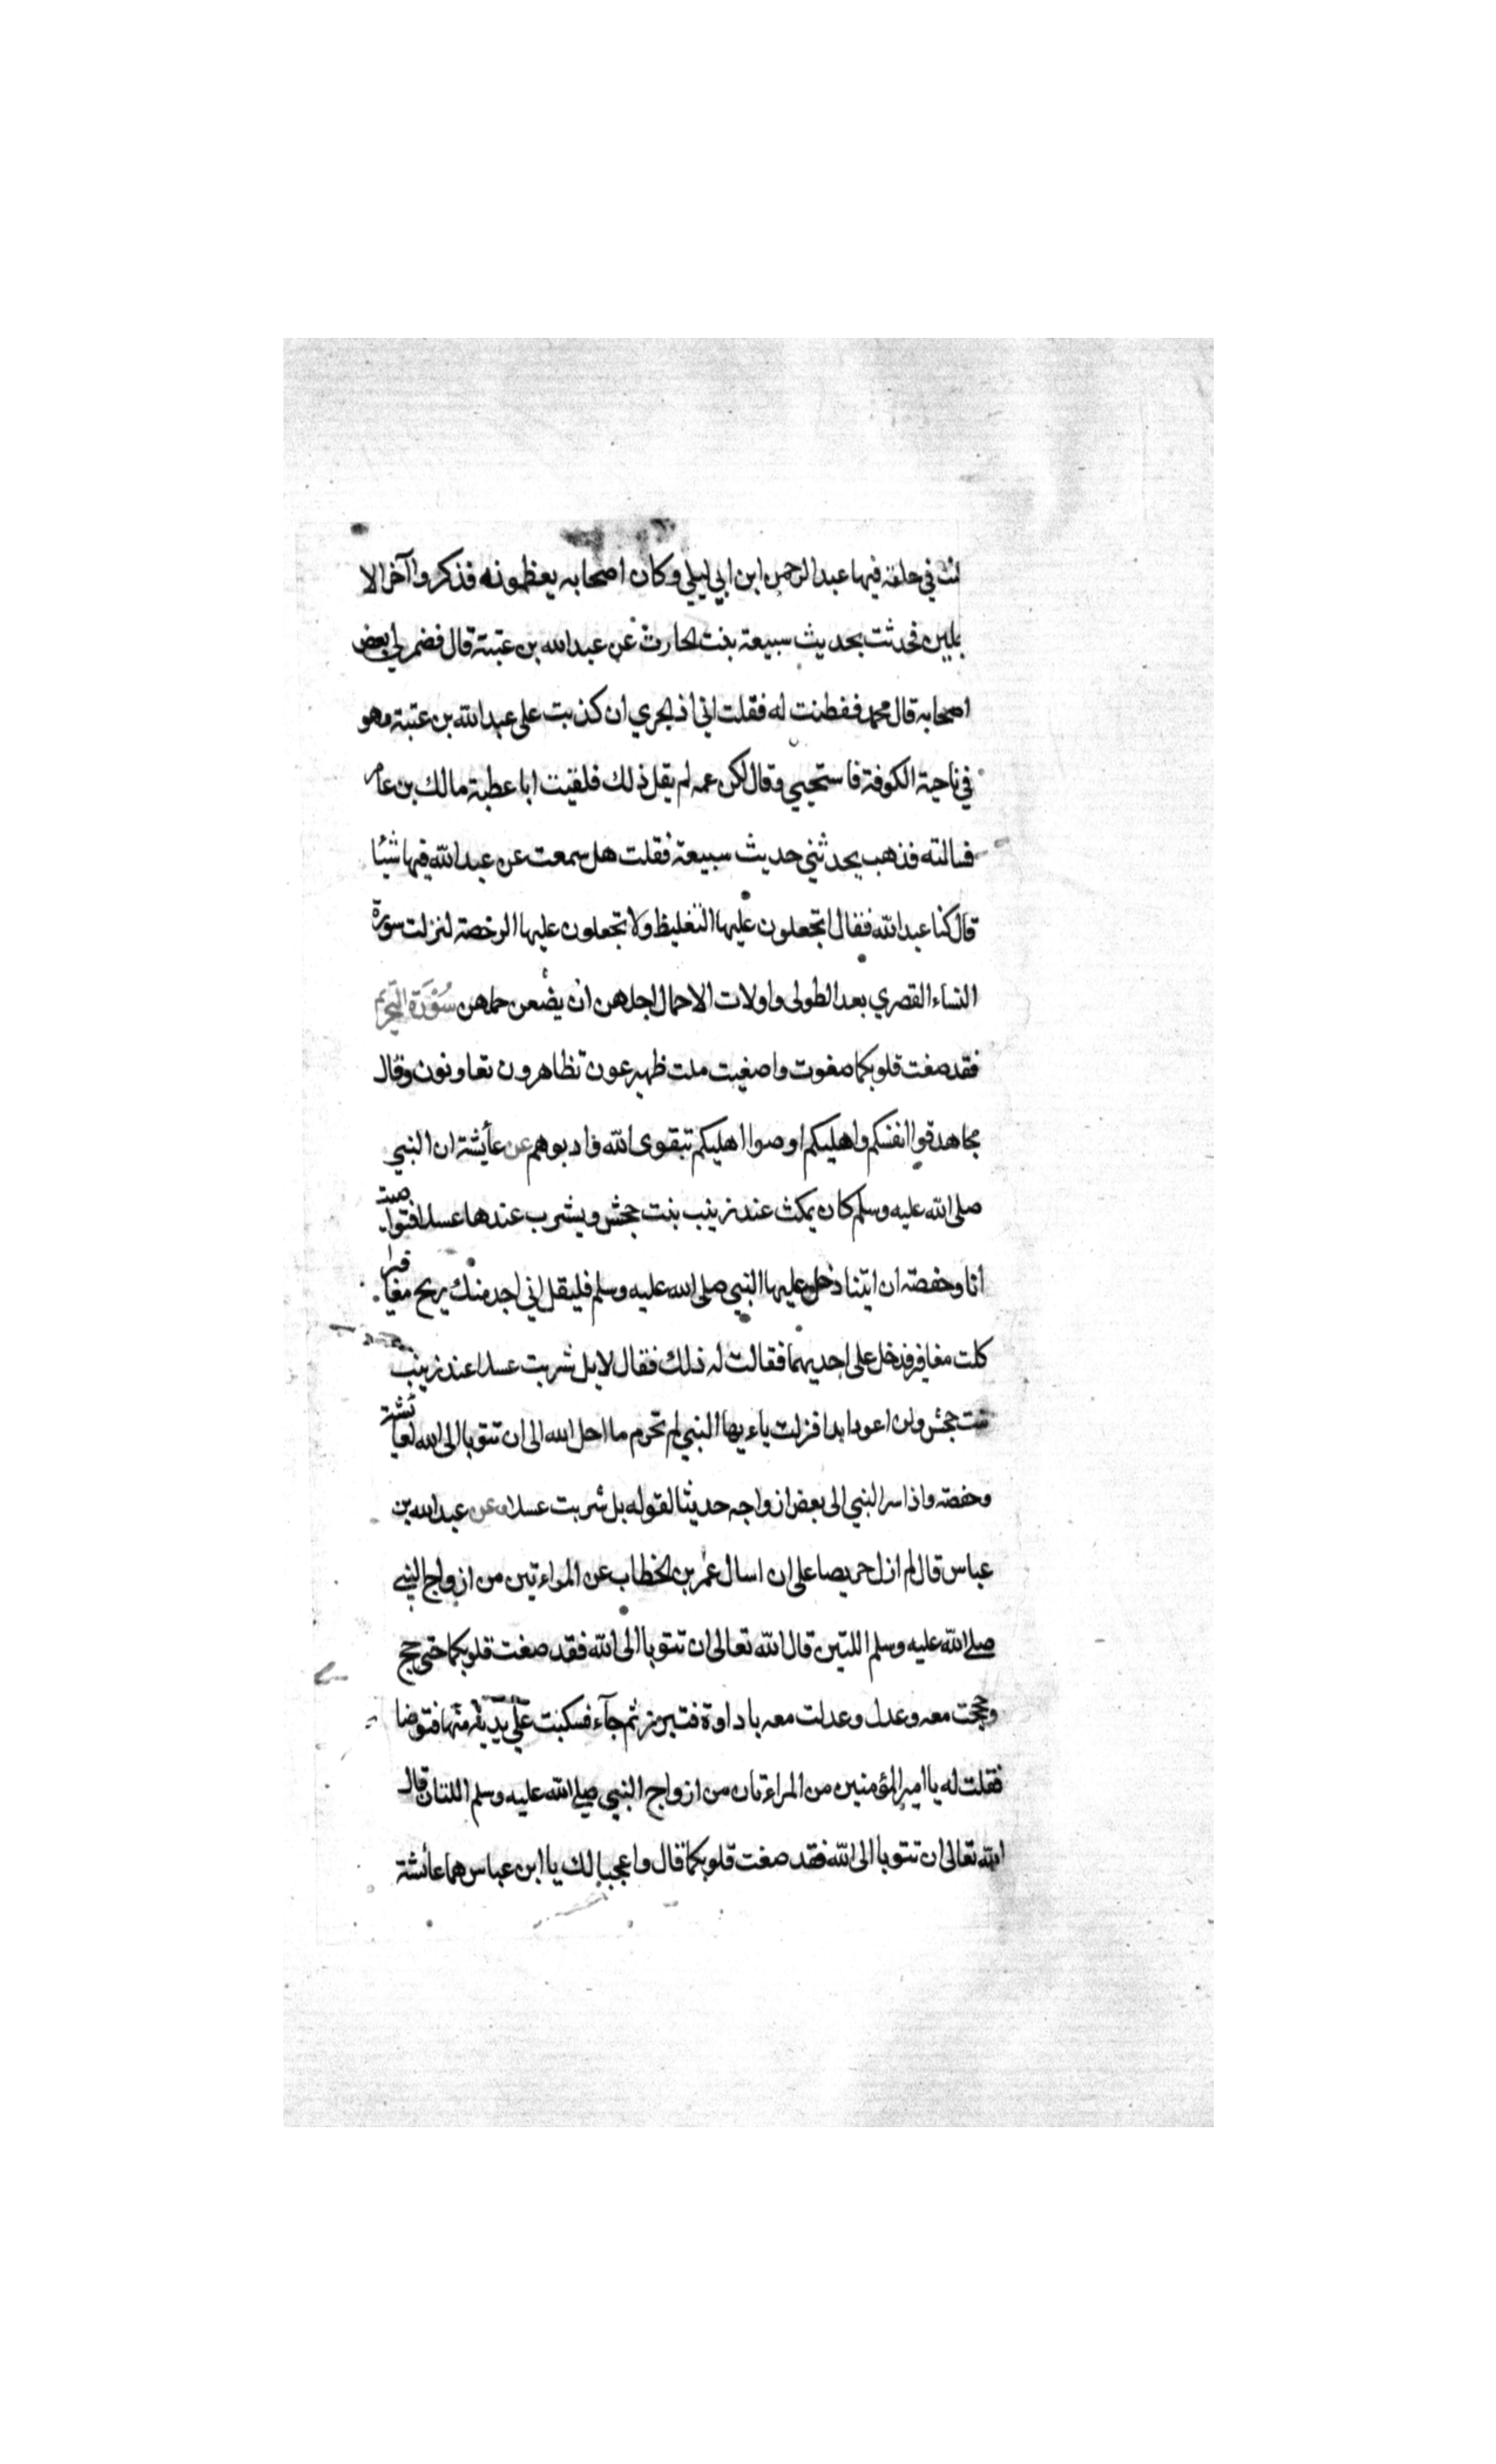 كنت في حلقة فيها عبد الرحمن ابن ابي ليلي وكان اصحابه يعظمونه فذكروا آخر الا
جلين فحدثت بحديث سبيعة بنت الحارث عن عبد الله بن عتبة قال فضمر لي بعض
اصحابه قال محمد ففطنت له فقلت اني اذ لجري ان كذبت على عبد الله بن عتبة وهو
في ناحية الكوفة فاستحيي وقال لكن عمه لم يقل ذلك فلقيت ابا عطية مالك بن عامر
فسالته فذهب يحدثني حديث سبيعة فقلت هل سمعت عن عبد الله فيها شيئا
قال كنا عبد الله فقال اتجعلون عليها التغليظ ولا تجعلون عليها الرخصة لنزلت سورة
النساء القصري بعد الطولى واولات الاحمال اجلهن ان يضعن حملهن سُوْرَة التحريم
فقد صغت قلوبكما صغوت واصغيت ملت ظهير عون تظاهرون تعاونون وقال
مجاهد قوا انفسكم واهليكم اوصوا اهليكم بتقوى الله وادبوهم عن عايشة ان النبي
صلى الله عليه وسلم كان يمكث عند زينب بنت جحش ويشرب عندها عسلا فتواصيت
انا وحفصة ان ايتنا دخل عليها النبي صلى الله عليه وسلم فليقل اني اجد منك ريح مغافير
اكلت مغافير فدخل على احديهما فقالت له ذلك فقال لا بل شربت عسلا عند زينب
بنت جحش ولن اعود ابدا فنزلت ياءيها النبي لم تحرم ما احل الله الى ان تتوبا الى الله لعائشة
وحفصة واذ اسر النبي الى بعض ازواجه حديثا لقوله بل شربت عسلا وعن عبد الله بن
عباس قال لم ازل حريصا على ان اسال عمر بن الخطاب عن المراءتين من ازواج النبي
صلى الله عليه وسلم اللتين قال الله تعالى ان تتوبا الى الله فقد صغت قلوبكما حتى حج
وحججت معه وعدل وعدلت معه باداوة فتبرز ثم جآء فسكبت على يديه منها فتوضا
فقلت له يا امير المؤمنين من المراءتان من ازواج النبي صلى الله عليه وسلم اللتان قال
الله تعالى ان تتوبا الى الله فقد صغت قلوبكما قال واعجبا لك يا ابن عباس هما عائشة